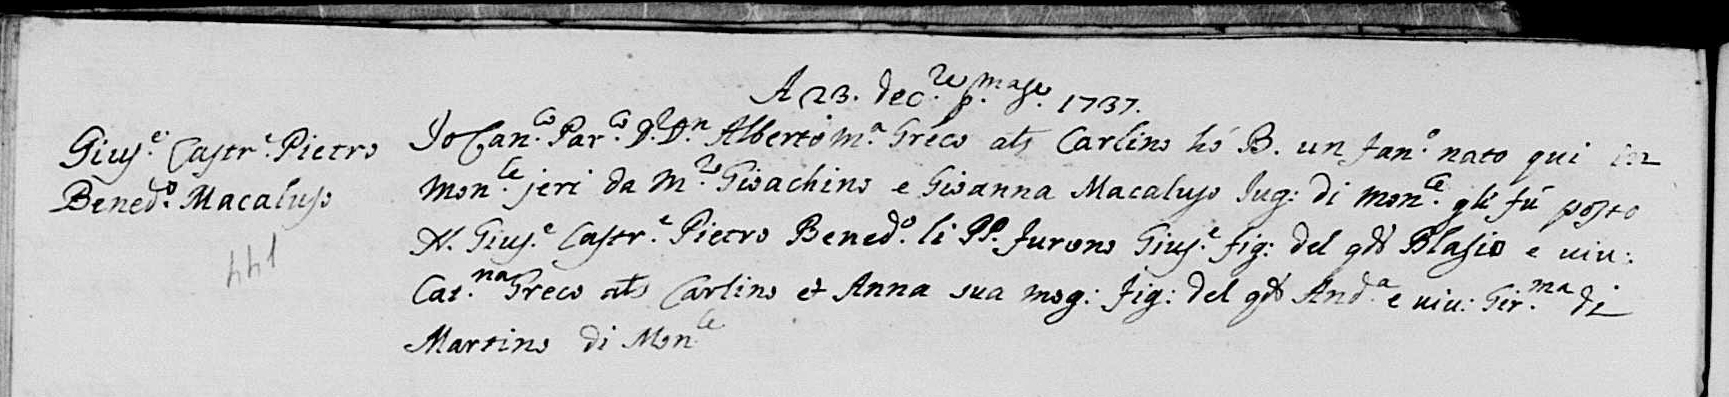 A 23. Dec.re p.ma Ind.e 1737.
Gius.e Castr.e Pietro
Bened.o Macaluso
144
Io Can.co Par.co D.r D.n Alberto M.a Greco als Carlino hò B. un fan.o nato qui in
Mon.le jeri da M.ro Gioachino e Gioanna Macaluso Jug: di Mon.le gli fù posto
N. Gius.e Castr.e Pietro Bened.o li PP. furono Gius.e fig: del qd Blasio e viv:
Cat.na Greco als Carlino et Anna sua mog: fig: del qd And.a e viv: Gir.ma di
Martino di Mon.le